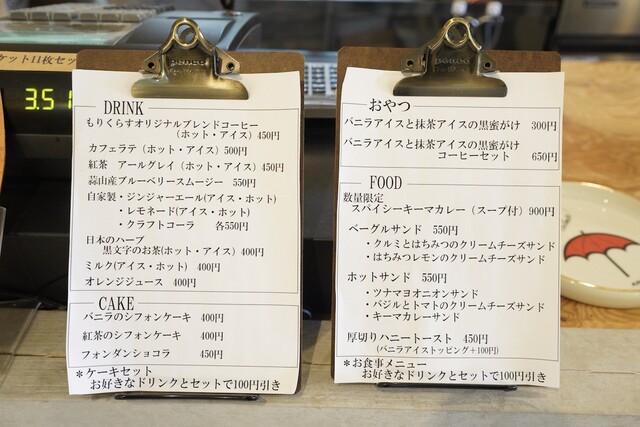 ケット11枚セット
3.51
DRINK
もりくらすオリジナルブレンドコーヒー
(ホット・アイス) 450円
カフェラテ(ホット・アイス) 500円
紅茶 アールグレイ(ホット・アイス) 450円
蒜山産ブルーベリースムージー 550円
自家製・ジンジャーエール(アイス・ホット)
・レモネード(アイス・ホット)
・クラフトコーラ 各550円
日本のハーブ
黒文字のお茶(ホット・アイス) 400円
ミルク(アイス・ホット) 400円
オレンジジュース 400円
CAKE
バニラのシフォンケーキ 400円
紅茶のシフォンケーキ 400円
フォンダンショコラ 450円
*ケーキセット
お好きなドリンクとセットで100円引き
おやつ
バニラアイスと抹茶アイスの黒蜜がけ 300円
バニラアイスと抹茶アイスの黒蜜がけ
コーヒーセット 650円
FOOD
数量限定
スパイシーキーマカレー(スープ付) 900円
ベーグルサンド 550円
・クルミとはちみつのクリームチーズサンド
・はちみつレモンのクリームチーズサンド
ホットサンド 550円
・ツナマヨオニオンサンド
・バジルとトマトのクリームチーズサンド
・キーマカレーサンド
厚切りハニートースト 450円
(バニラアイストッピング+100円)
*お食事メニュー
お好きなドリンクとセットで100円引き